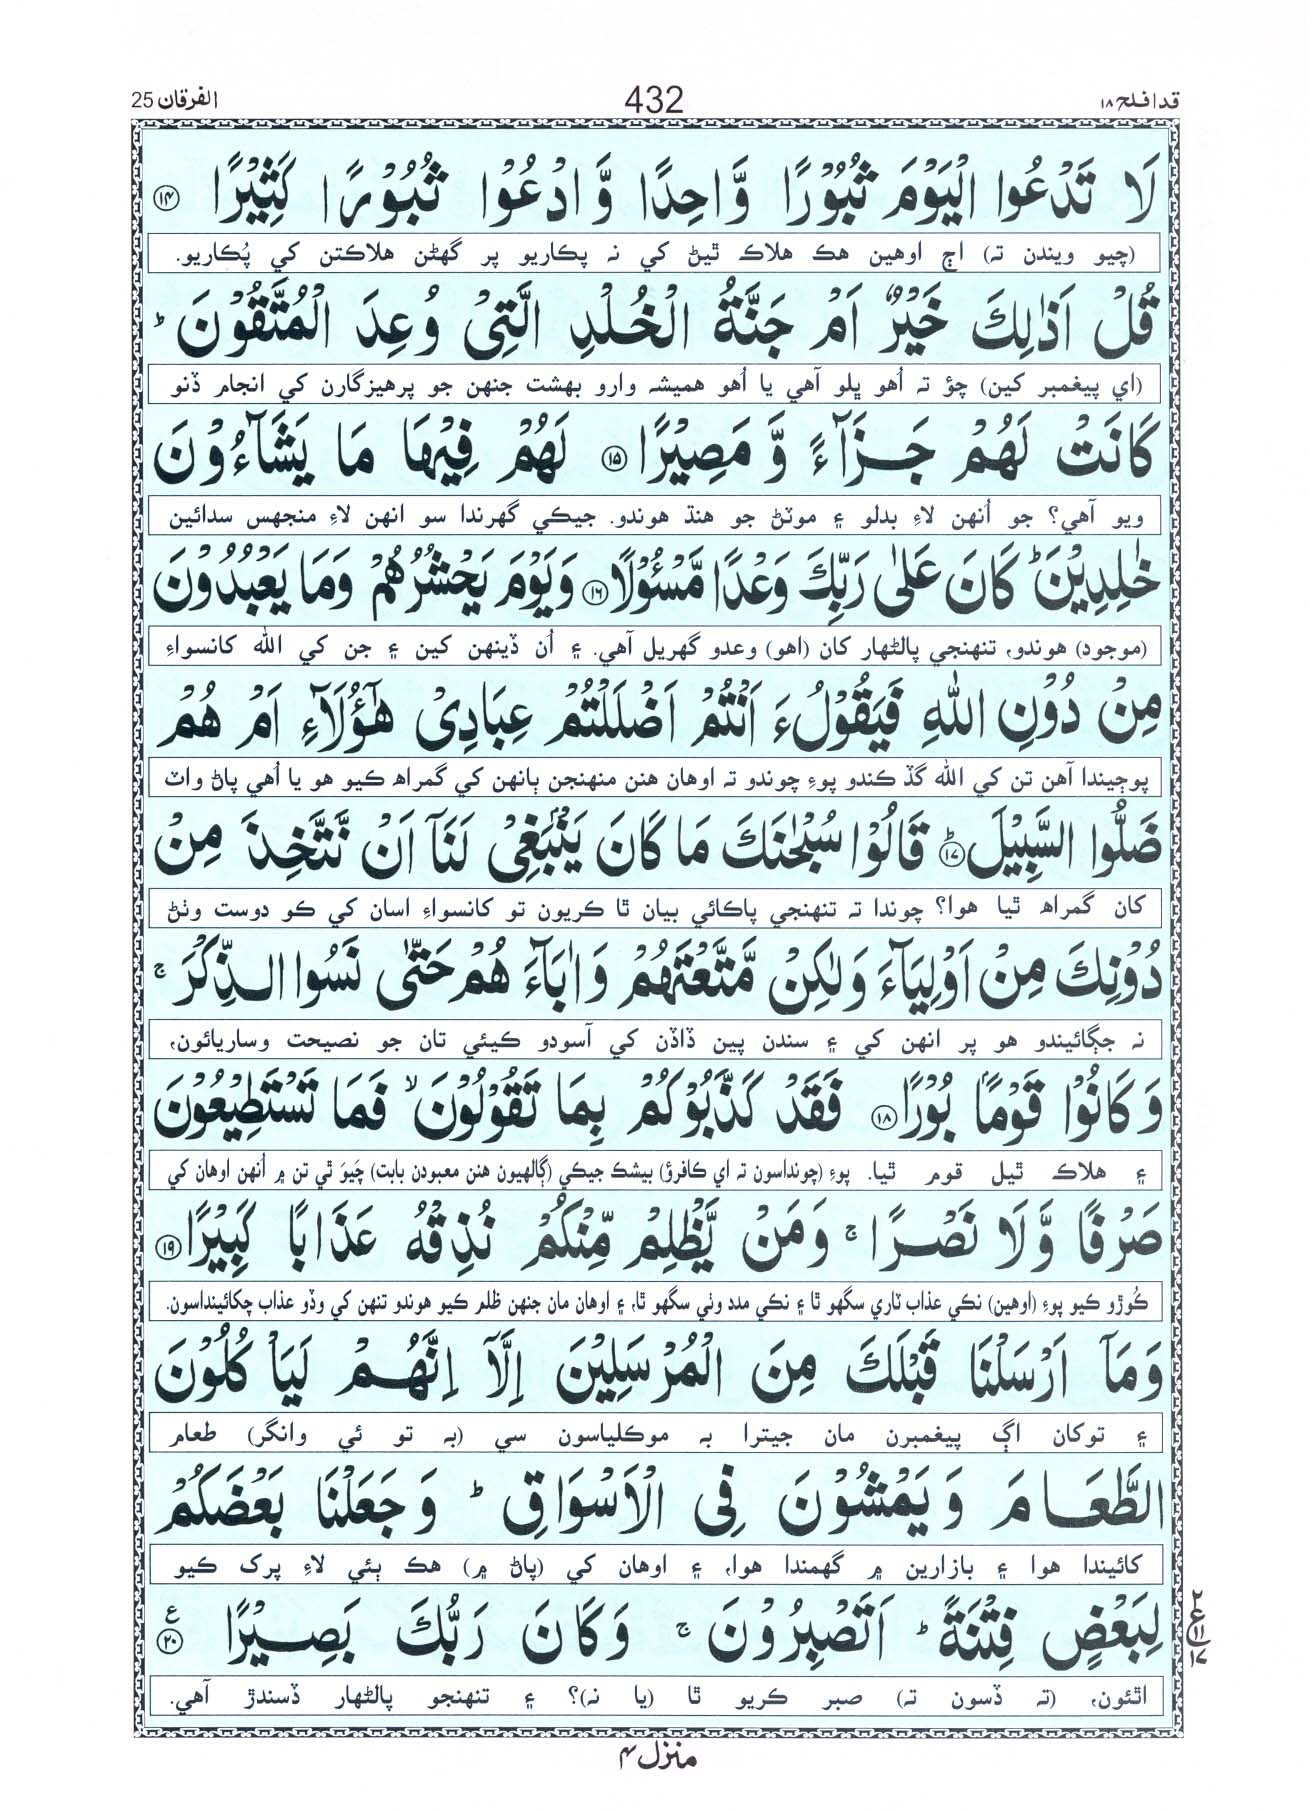 قد افلح ۱۸
432
الفرقان 25
لَا تَدْعُوا الْيَوْمَ ثُبُوْرًا وَّاحِدًا وَّادْعُوْا ثُبُوْرًا كَثِيْرًا ۝۱۴
(چيو ويندن ته) اڄ اوهين هڪ هلاڪ ٿيڻ کي نه پڪاريو پر گهڻن هلاڪتن کي پُڪاريو.
قُلْ اَذٰلِكَ خَيْرٌ اَمْ جَنَّةُ الْخُلْدِ الَّتِيْ وُعِدَ الْمُتَّقُوْنَ ؕ
(اي پيغمبر کين) چؤ ته اُهو ڀلو آهي يا اُهو هميشه وارو بهشت جنهن جو پرهيزگارن کي انجام ڏنو
كَانَتْ لَهُمْ جَزَآءً وَّ مَصِيْرًا ۝۱۵ لَهُمْ فِيْهَا مَا يَشَآءُوْنَ
ويو آهي؟ جو اُنهن لاءِ بدلو ۽ موٽڻ جو هنڌ هوندو. جيڪي گهرندا سو انهن لاءِ منجهس سدائين
خٰلِدِيْنَ ؕ كَانَ عَلٰى رَبِّكَ وَعْدًا مَّسْـُٔوْلًا ۝۱۶ وَيَوْمَ يَحْشُرُهُمْ وَمَا يَعْبُدُوْنَ
(موجود) هوندو، تنهنجي پالڻهار کان (اهو) وعدو گهريل آهي. ۽ اُن ڏينهن کين ۽ جن کي الله کانسواءِ
مِنْ دُوْنِ اللّٰهِ فَيَقُوْلُ ءَ اَنْتُمْ اَضْلَلْتُمْ عِبَادِيْ هٰٓؤُلَآءِ اَمْ هُمْ
پوڄيندا آهن تن کي الله گڏ ڪندو پوءِ چوندو ته اوهان هنن منهنجن ٻانهن کي گمراھ ڪيو هو يا اُهي پاڻ واٽ
ضَلُّوا السَّبِيْلَ ؕ۝۱۷ قَالُوْا سُبْحٰنَكَ مَا كَانَ يَنْۢبَغِيْ لَنَآ اَنْ نَّتَّخِذَ مِنْ
کان گمراھ ٿيا هوا؟ چوندا ته تنهنجي پاڪائي بيان ٿا ڪريون تو کانسواءِ اسان کي ڪو دوست وٺڻ
دُوْنِكَ مِنْ اَوْلِيَآءَ وَلٰكِنْ مَّتَّعْتَهُمْ وَاٰبَآءَ هُمْ حَتّٰى نَسُوا الذِّكْرَ ۚ
نه جڳائيندو هو پر انهن کي ۽ سندن پيئن ڏاڏن کي آسودو ڪيئي تان جو نصيحت وساريائون،
وَكَانُوْا قَوْمًۢا بُوْرًا ۝۱۸ فَقَدْ كَذَّبُوْكُمْ بِمَا تَقُوْلُوْنَ ۙ فَمَا تَسْتَطِيْعُوْنَ
۽ هلاڪ ٿيل قوم ٿيا. پوءِ (چونداسون ته اي ڪافرؤ) بيشڪ جيڪي (ڳالهيون هنن معبودن بابت) چَيوَ ٿي تن ۾ اُنهن اوهان کي
صَرْفًا وَّلَا نَصْرًا ۚ وَمَنْ يَّظْلِمْ مِّنْكُمْ نُذِقْهُ عَذَابًا كَبِيْرًا ۝۱۹
ڪُوڙو ڪيو پوءِ (اوهين) نڪي عذاب ٽاري سگهو ٿا ۽ نڪي مدد وٺي سگهو ٿا، ۽ اوهان مان جنهن ظلم ڪيو هوندو تنهن کي وڏو عذاب چکائينداسون.
وَمَآ اَرْسَلْنَا قَبْلَكَ مِنَ الْمُرْسَلِيْنَ اِلَّآ اِنَّهُمْ لَيَاْكُلُوْنَ
۽ توکان اڳ پيغمبرن مان جيترا به موڪلياسون سي (به تو ئي وانگر) طعام
الطَّعَامَ وَيَمْشُوْنَ فِى الْاَسْوَاقِ ؕ وَجَعَلْنَا بَعْضَكُمْ
کائيندا هوا ۽ بازارين ۾ گهمندا هوا، ۽ اوهان کي (پاڻ ۾) هڪ ٻئي لاءِ پرک ڪيو
لِبَعْضٍ فِتْنَةً ؕ اَتَصْبِرُوْنَ ۚ وَكَانَ رَبُّكَ بَصِيْرًا ۝۲۰ ع
اٿئون، (ته ڏسون ته) صبر ڪريو ٿا (يا نه)؟ ۽ تنهنجو پالڻهار ڏسندڙ آهي.
منزل ۴